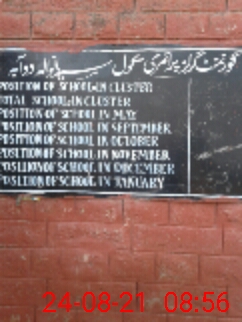 گورنمنٹ گرلز پرائمری سکول
POSITION OF SCHOOL IN CLUSTER
TOTAL SCHOOL IN CLUSTER
POSITION OF SCHOOL IN MAY
POSITION OF SCHOOL IN SEPTEMBER
POSITION OF SCHOOL IN OCTOBER
POSITION OF SCHOOL IN NOVEMBER
POSITION OF SCHOOL IN DECEMBER
POSITION OF SCHOOL IN JANUARY
24-08-21 08:56